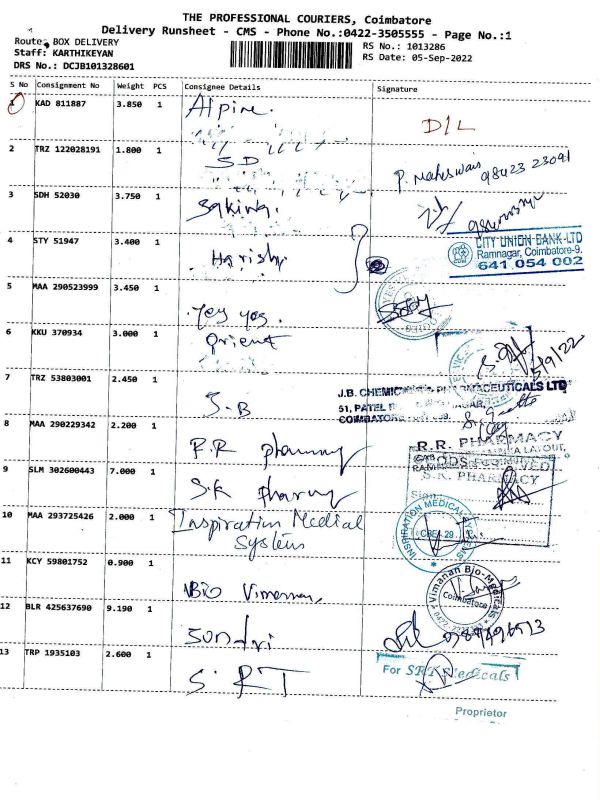 THE PROFESSIONAL COURIERS, Coimbatore
Delivery Runsheet - CMS - Phone No.:0422-3505555 - Page No.:1
Route: BOX DELIVERY
RS No.: 1013286
Staff: KARTHIKEYAN
RS Date: 05-Sep-2022
DRS No.: DCJB101328601
S No Consignment No Weight Pcs Consignee Details Signature
1 KAD 811887 3.850 1 Alpine.
D/L
2 TRZ 122028191 1.800 1 SD
P. Maheswari 98423 23091
3 SDH 52030 3.750 1
CITY UNION BANK LTD
Ramnagar, Coimbatore-9.
641 054 002
4 STY 51947 3.400 1 Harish
5 MAA 290523999 3.450 1 Yes yes.
6 KKU 370934 3.000 1 Orient
5/9/22
7 TRZ 53803001 2.450 1 J.B
J.B. CHEMIC PHARMACEUTICALS LTD
51, PATEL
COIMBATORE
8 MAA 290229342 2.200 1 R.R pharmacy
R.R. PHARMACY
LAYOUT,
GOODS RECEIVED
9 SLM 302600443 7.000 1 S.K pharmacy
S.K. PHARMACY
Sign
10 MAA 293725426 2.000 1 Inspiration Medial
Systems
INSPIRATION MEDICAL SYSTEMS
CBE - 29
11 KCY 59801752 0.900 1 Bio Vimanan
Vimanan Bio-Medicals
Coimbatore
12 BLR 425637690 9.190 1
13 TRP 1935103 2.600 1 S. RT
For SRT Medicals
Proprietor